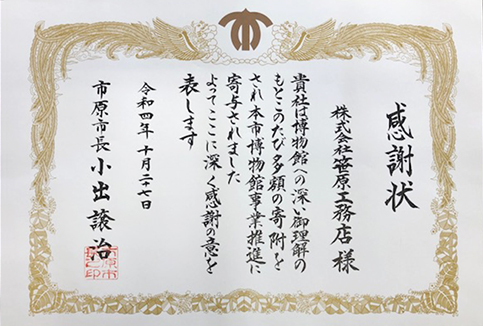 感謝状
株式会社笹原工務店 様
貴社は博物館への深い御理解の
もとこのたび多額の寄附を
され本市博物館事業推進に
寄与されました
よってここに深く感謝の意を
表します
令和四年 十月二十七日
市原市長 小出 譲治